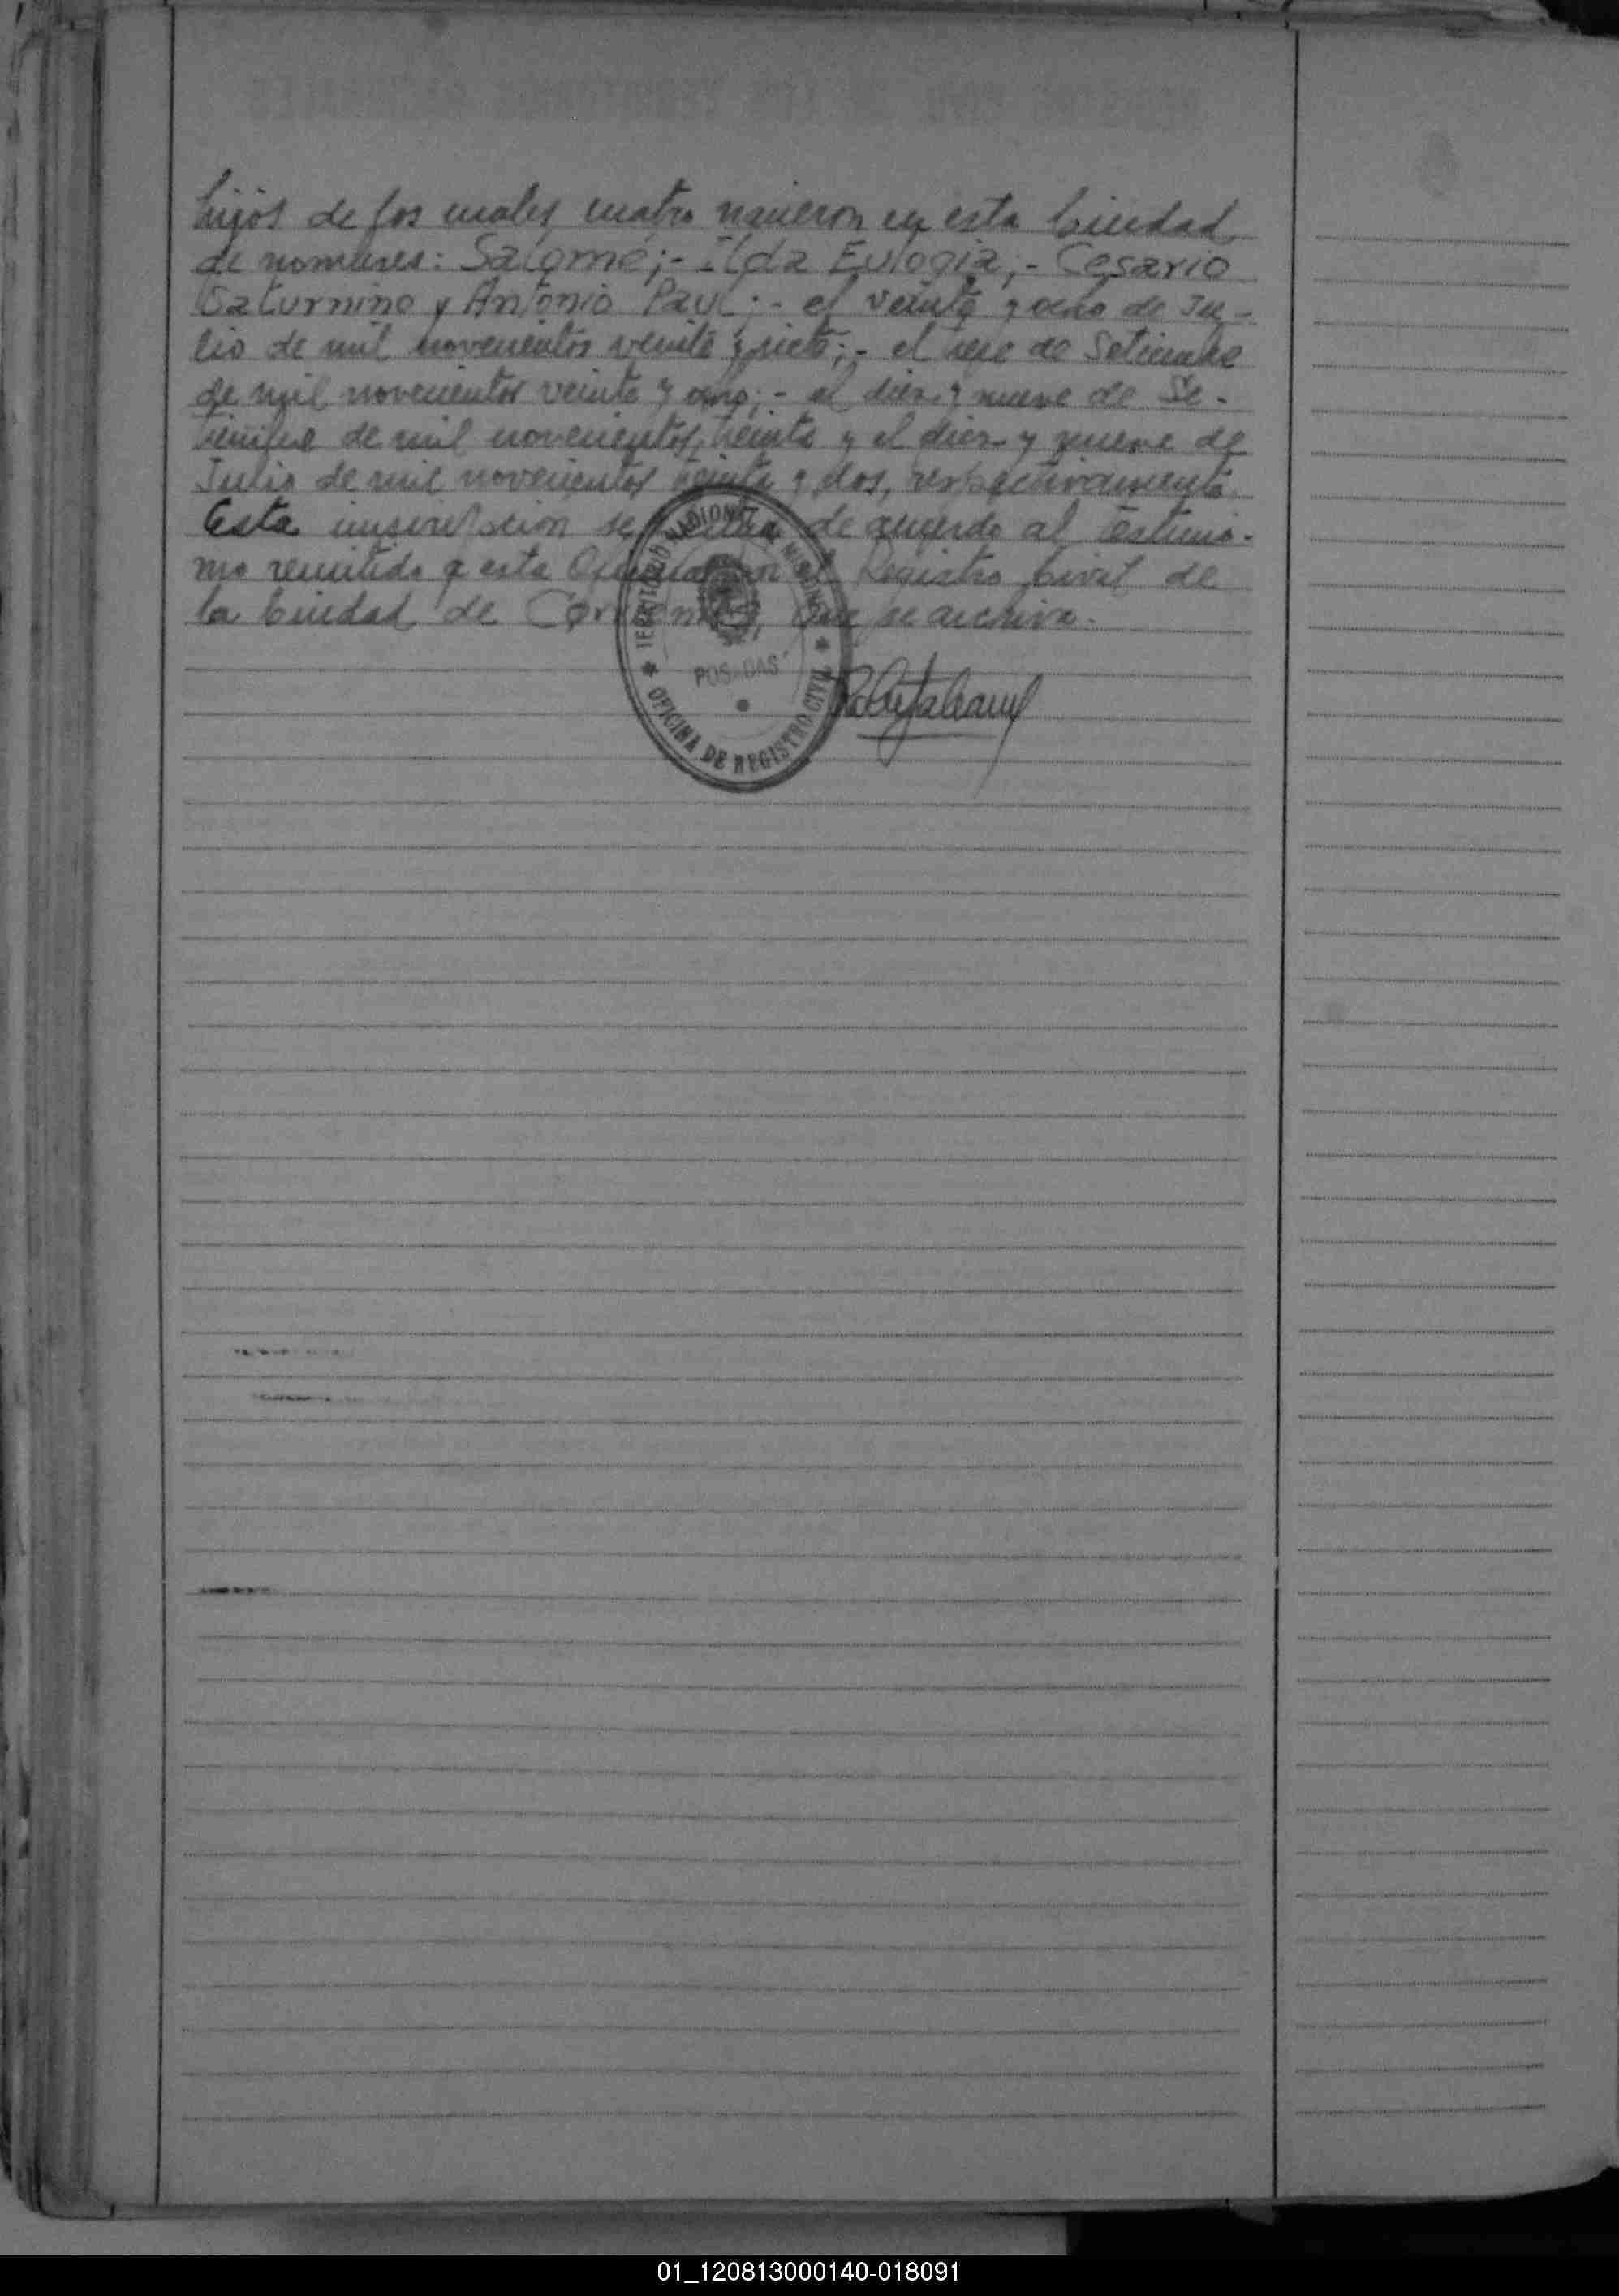 hijos de los cuales, cuatro nacieron en esta Ciudad,
de nombres: Salomé;- Ilda Eulogia;- Cesario
Saturnino y Antonio Paul;- el veinte y ocho de Ju-
lio de mil novecientos veinte y siete;- el once de Setiembre
de mil novecientos veinte y ocho;- el diez y nueve de Se-
tiembre de mil novecientos treinta y el diez y nueve de
Julio de mil novecientos treinta y dos, respectivamente.
Esta inscripcion se efectua de acuerdo al testimo-
nio remitido a esta Oficina por el Registro Civil de
la Ciudad de Corrientes, que se archiva.-
TERRITORIO NACIONAL MISIONES
POSADAS
OFICINA DE REGISTRO CIVIL
01_120813000140-018091